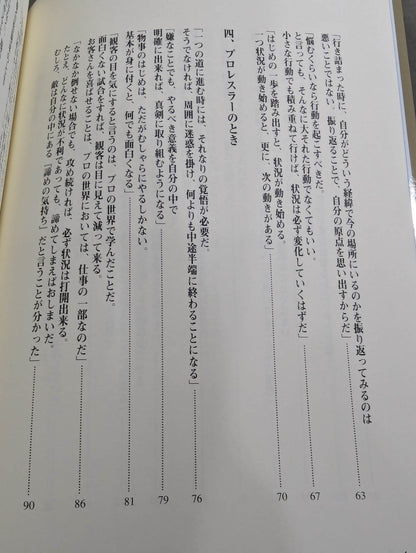 「行き詰まった時に、自分がどういう経緯で今の場所にいるのかを振り返ってみるのは
悪いことではない。振り返ることで、自分の原点を思い出すからだ」……63
「悩むくらいなら行動を起こすべきだ。
と言っても、そんなに大それた行動でなくてもいい。
小さな行動でも積み重ねて行けば、状況は必ず変化していくはずだ」……67
「はじめの一歩を踏み出すと、状況が動き始める。
一つ状況が動き始めると、更に、次の動きがある」……70
四、プロレスラーのとき
「一つの道に進む時には、それなりの覚悟が必要だ。
そうでなければ、周囲に迷惑を掛け、何よりも中途半端に終わることになる」……76
「嫌なことでも、やるべき意義を自分の中で
明確に出来れば、真剣に取り組むようになる」……79
「物事のはじめは、ただがむしゃらにやるしかない。
基本が身に付くと、何でも面白くなる」……81
「観客の目を気にすると言うのは、プロの世界で学んだことだ。
面白くない試合をすれば、観客は目に見えて減って来る。
お客さんを喜ばせることは、プロの世界においては、仕事の一部なのだ」……86
「なかなか倒せない場合でも、攻め続ければ、必ず状況は打開出来る。
たとえ、どんなに状況が不利であっても、諦めてしまえばおしまいだ。
むしろ、敵は自分の中にある『諦めの気持ち』だと言うことが分かった」……90